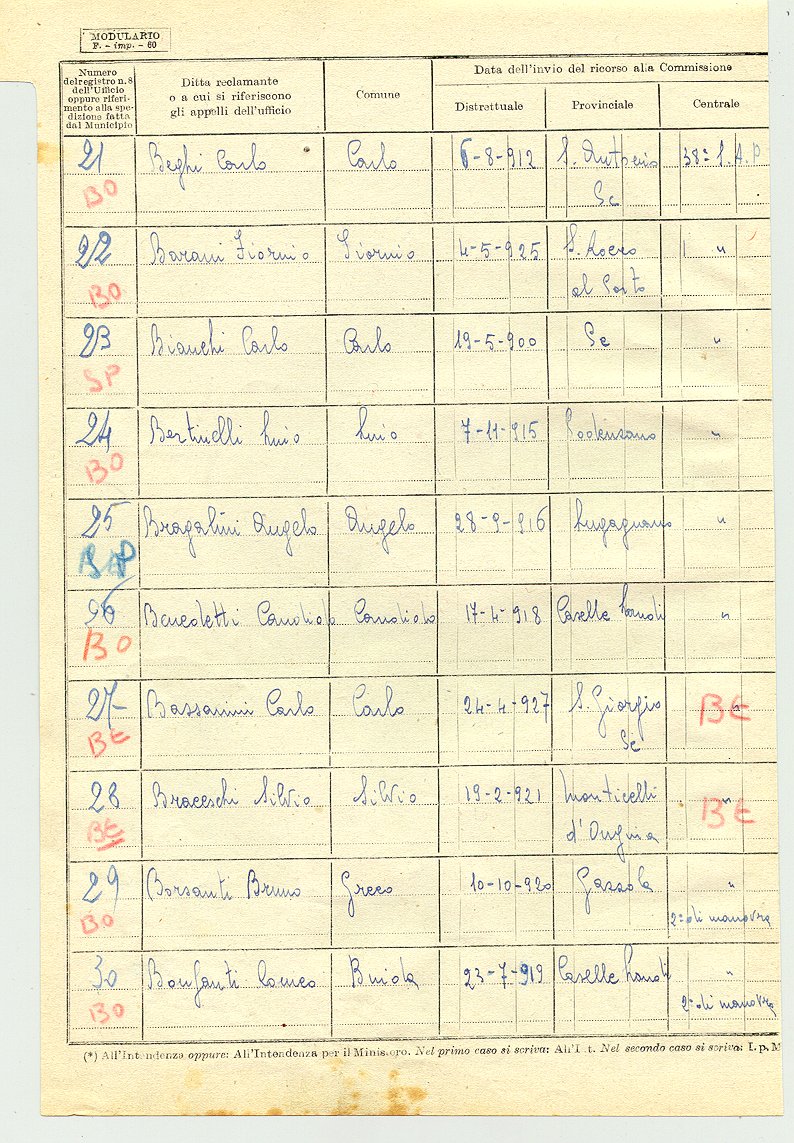 MODULARIO
F. - imp. - 60
Numero
del registro n. 8
dell'Ufficio
oppure riferi-
mento alla spe-
dizione fatta
dal Municipio
Ditta reclamante
o a cui si riferiscono
gli appelli dell'ufficio
Comune
Data dell'invio del ricorso alla Commissione
Distrettuale
Provinciale
Centrale
21 Beghi Carlo Carlo 6-8-912 S. 38ª S.A.P
BO
22 Barani Fiornio Fiornio 4-5-925 S. Rocco "
BO al Porto
23 Bianchi Carlo Carlo 19-5-900 "
SP
24 Bertinelli Livio Livio 7-11-915 Podenzano "
BO
25 Bragalini Angelo Angelo 28-9-916 Lugagnano "
26 Benedetti Candido Candido 17-4-918 Caselle Landi "
BO
27 Bassanini Carlo Carlo 24-4-927 S. Giorgio "
BE BE
28 Braceschi Silvio Silvio 19-2-921 Monticelli "
BE d'Ongina BE
29 Borsanti Bruno Greco 10-10-920 Gazzola "
BO 2ª di manovra
30 Bonfanti Romeo 23-7-919 Caselle Landi "
BO 2ª di manovra
(*) All'Intendenza oppure: All'Intendenza per il Ministero. Nel primo caso si scriva: All'I.t. Nel secondo caso si scriva: I. p. M